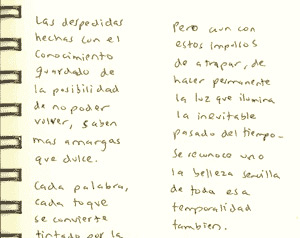 Las despedidas
hechas con el
conocimiento
guardado de
la posibilidad
de no poder
volver, saben
mas amargas
que dulce.
Cada palabra,
cada toque
se convierte
tintado por la
Pero aun con
estos impulsos
de atrapar, de
hacer permanente
la luz que ilumina
la inevitable
pasado del tiempo-
Se reconoce uno
la belleza sencilla
de toda esa
temporalidad
tambien.